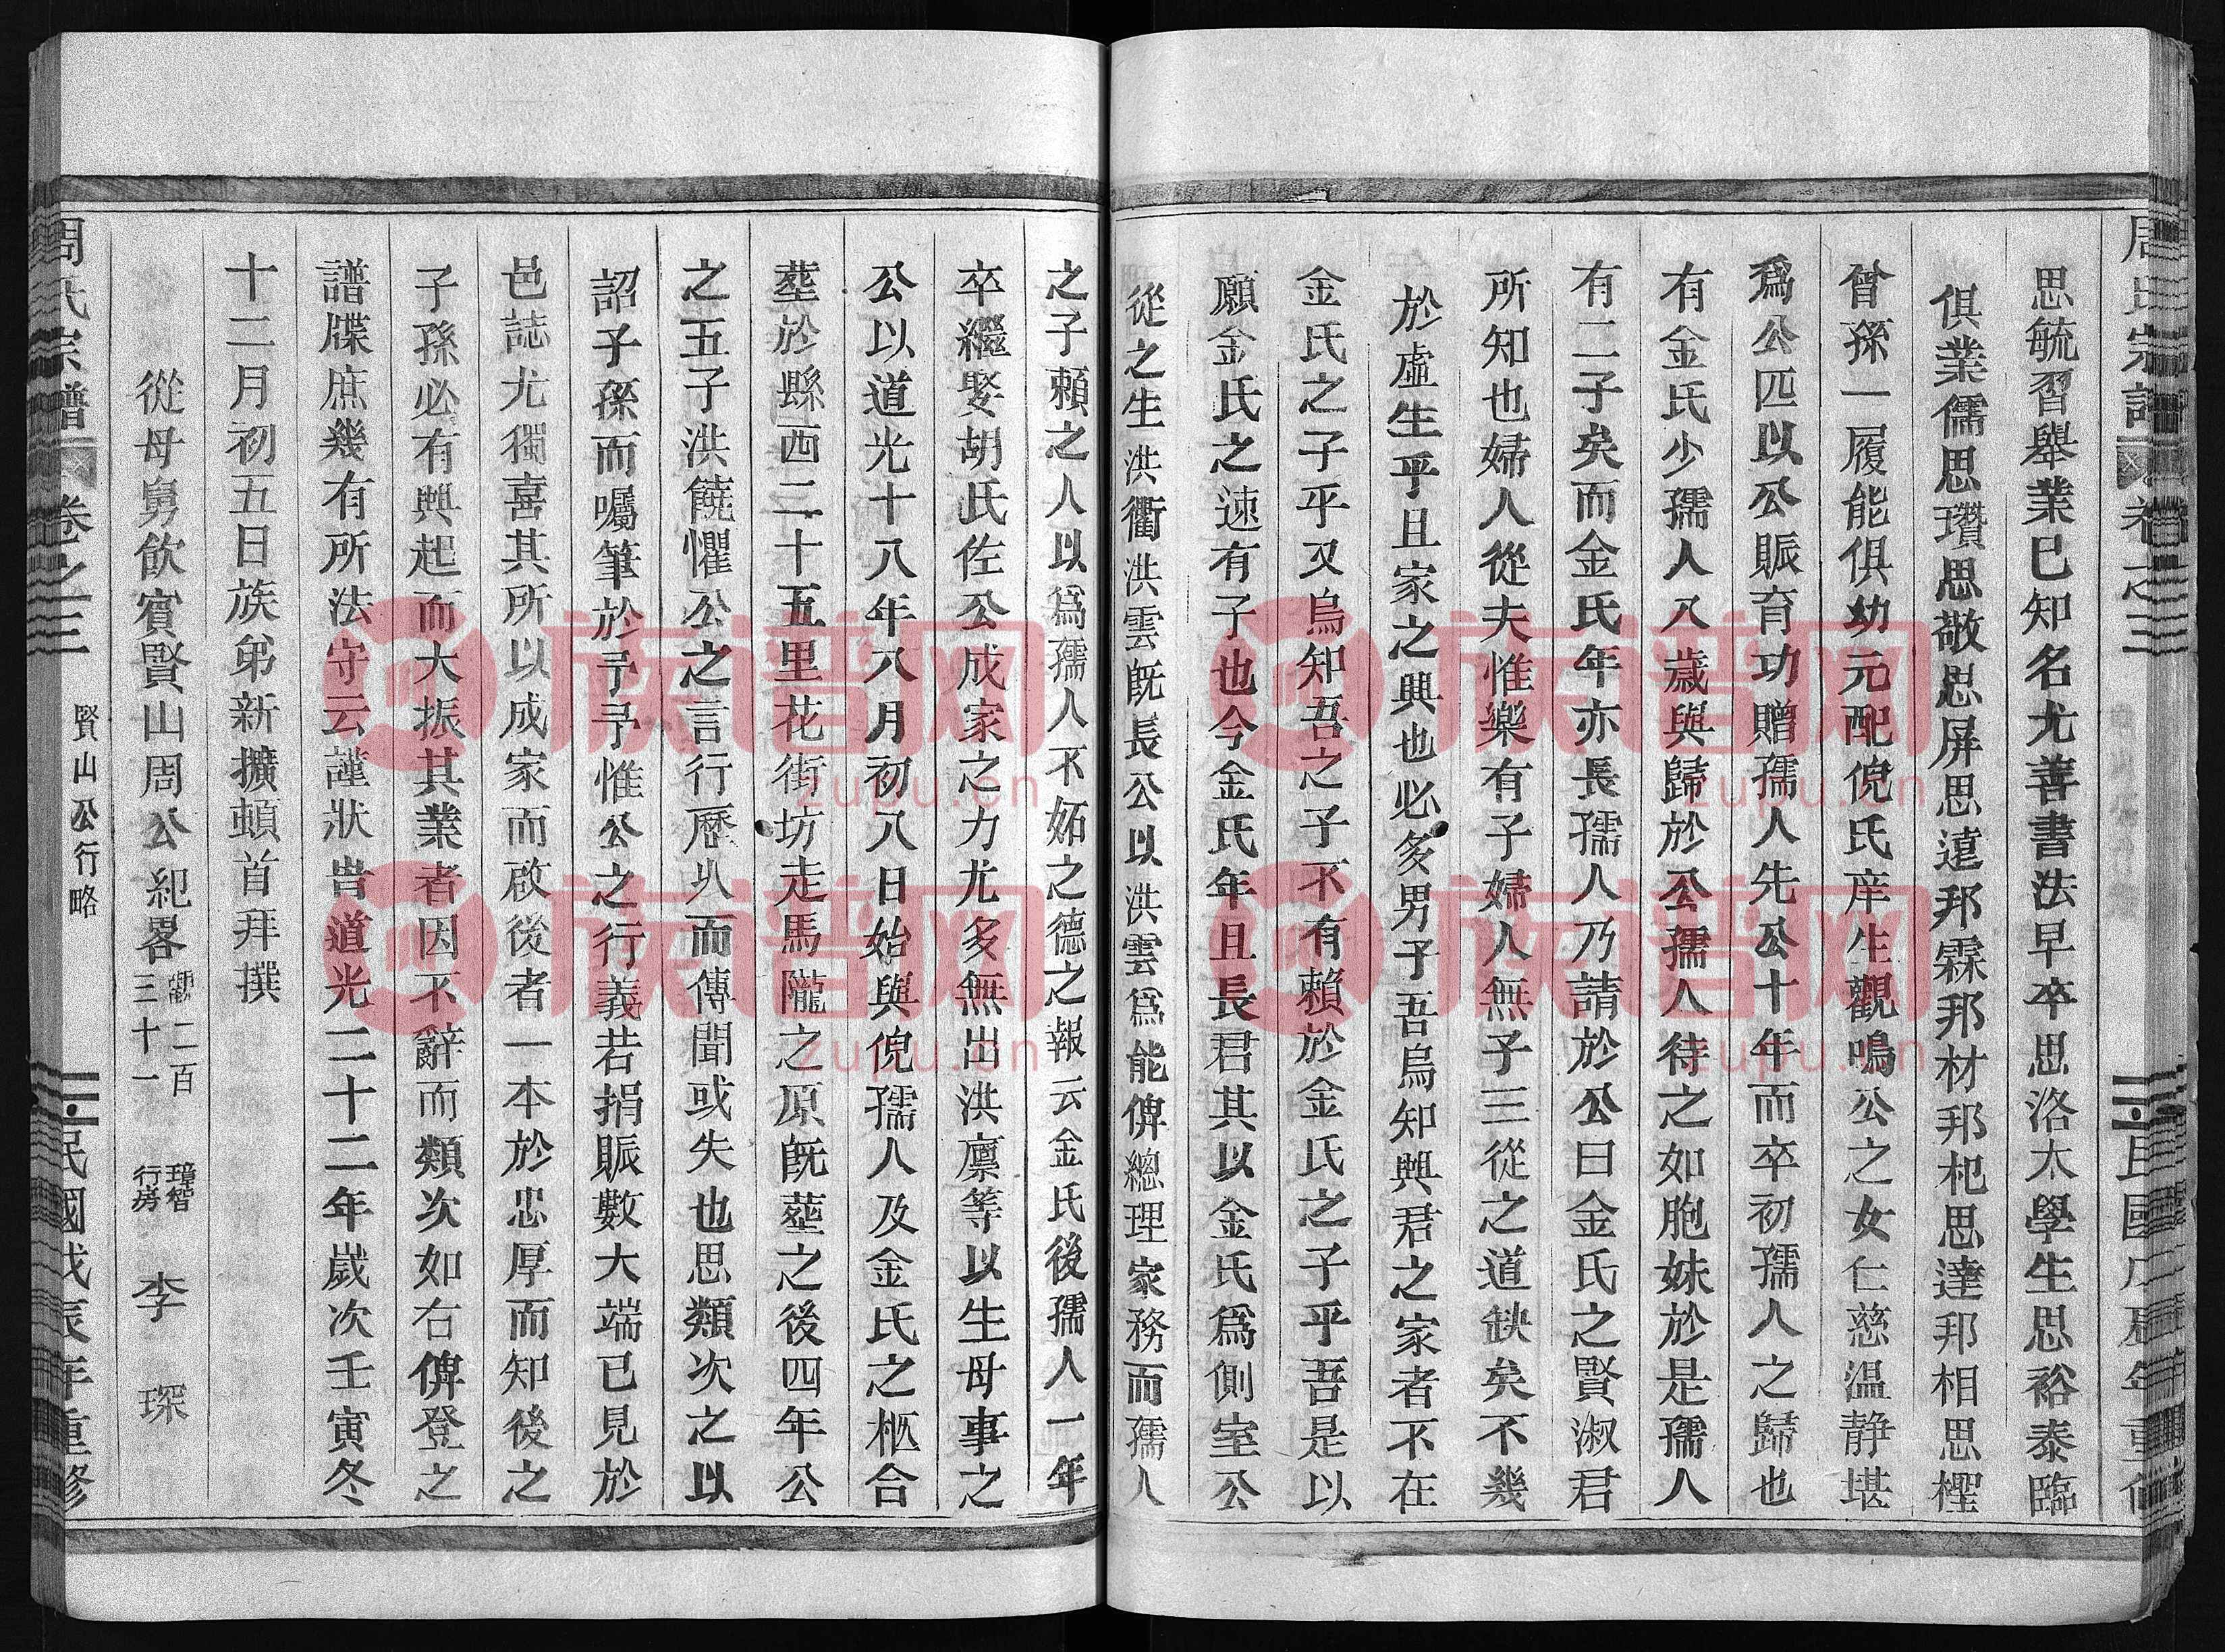 思毓習舉業已知名尤善書法早卒思洛太學生思裕泰臨
俱業儒思瓚思敬思屏思遠邦霖邦材邦杞思達邦相思檉
曾孫一履能俱幼元配倪氏庠生觀鳴公之女仁慈温静堪
爲公匹以公賑育功贈孺人先公十年而卒初孺人之歸也
有金氏少孺人八歲與歸於公孺人待之如胞妹於是孺人
有二子矣而金氏年亦長孺人乃請於公曰金氏之賢淑君
所知也婦人從夫惟樂有子婦人無子三從之道缺矣不幾
於虛生乎且家之興也必多男子吾烏知興君之家者不在
金氏之子乎又烏知吾之子不有賴於金氏之子乎吾是以
願金氏之速有子也今金氏年且長君其以金氏爲側室公
從之生洪衢洪雲既長公以洪雲爲能俾總理家務而孺人
之子賴之人以爲孺人不妬之德之報云金氏後孺人一年
卒繼娶胡氏佐公成家之力尤多無出洪廪等以生母事之
公以道光十八年八月初八日始與倪孺人及金氏之柩合
塟於縣西二十五里花街坊走馬隴之原既塟之後四年公
之五子洪饒懼公之言行歷久而傳聞或失也思類次之以
詔子孫而囑筆於予予惟公之行義若捐賑數大端已見於
邑誌尤獨喜其所以成家而啟後者一本於忠厚而知後之
子孫必有興起而大振其業者因不辭而類次如右俾登之
譜牒庶幾有所法守云謹狀旹道光二十二年歲次壬寅冬
十二月初五日族弟新擴頓首拜撰
從母舅飲賓賢山周公紀畧 二百三十一 璋智行房 李琛
周氏宗譜 卷之三 賢山公行略 民國戊辰年重修